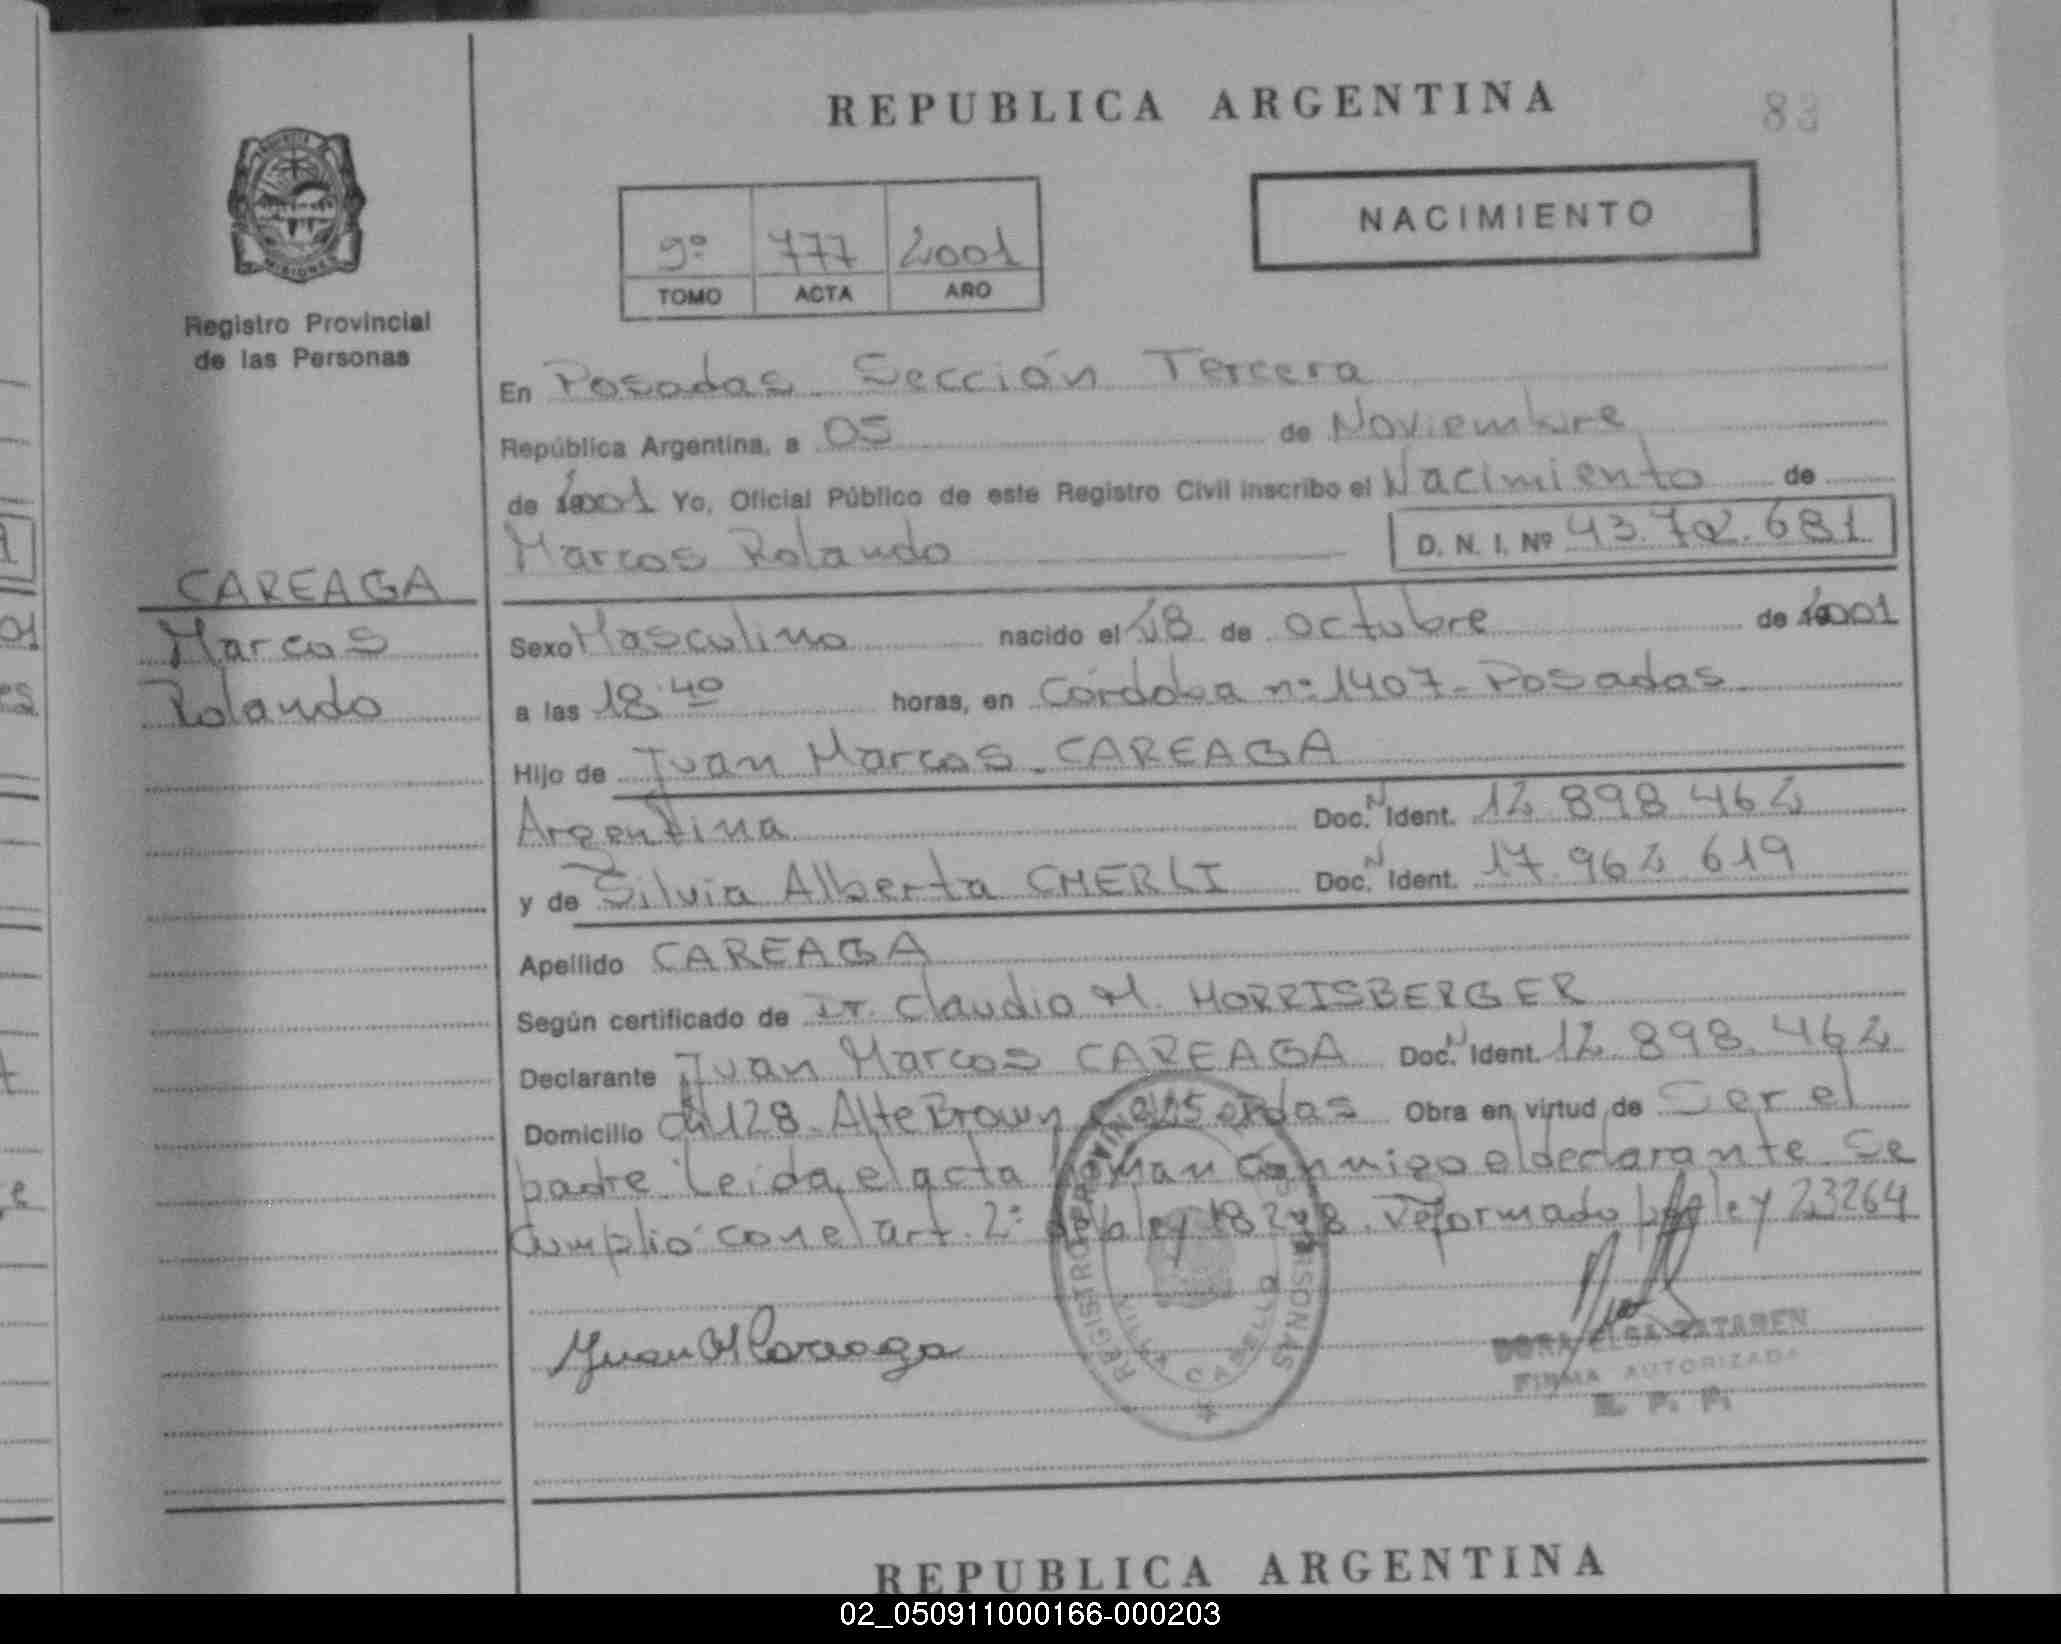 REPUBLICA ARGENTINA
83
MISIONES
Registro Provincial
de las Personas
9º 777 2001
TOMO ACTA AÑO
NACIMIENTO
En Posadas Sección Tercera
República Argentina, a 05 de Noviembre
de 2001 Yo, Oficial Público de este Registro Civil inscribo el Nacimiento de
Marcos Rolando D. N. I. Nº 43.72.681
CAREAGA
Marcos
Rolando
Sexo Masculino nacido el 28 de octubre de 2001
a las 18:40 horas, en Córdoba nº 1407 - Posadas
Hijo de Juan Marcos CAREAGA
Argentina Doc. N Ident. 12 898 462
y de Silvia Alberta CHERLI Doc. N Ident. 17 962 619
Apellido CAREAGA
Según certificado de Dr. Claudio M. MORRISBERGER
Declarante Juan Marcos CAREAGA Doc. N Ident. 12 898. 462
Domicilio ch 128 - Alte Brown Obra en virtud de Ser el
padre Leída el acta firman conmigo el declarante Se
Cumplió con el art. 2º de la ley 18248. reformado ley 23264
Juan M Careaga
REGISTRO PROVINCIAL PERSONAS
VILLA CABELLO
DORA ELSA
FIRMA AUTORIZADA
R. P. P.
REPUBLICA ARGENTINA
02_050911000166-000203